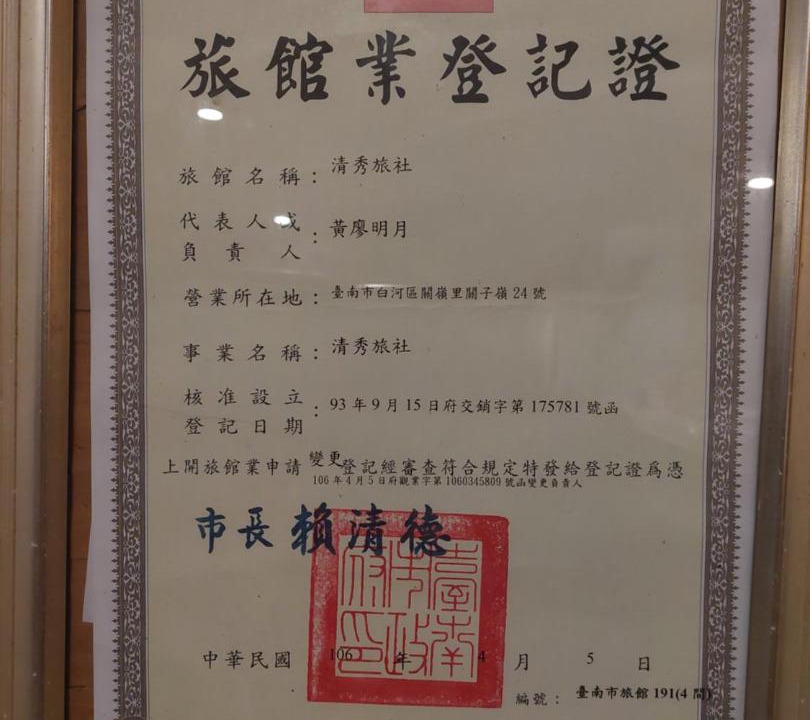 旅館業登記證
旅館名稱：清秀旅社
代表人或
負責人：黃廖明月
營業所在地：臺南市白河區關嶺里關子嶺24號
事業名稱：清秀旅社
核准設立
登記日期：93年9月15日府交銷字第175781號函
上開旅館業申請變更登記經審查符合規定特發給登記證爲憑
106年4月5日府觀業字第1060345809號函變更負責人
市長 賴清德
臺南市政府印
中華民國 106 年 4 月 5 日
編號：臺南市旅館191(4間)